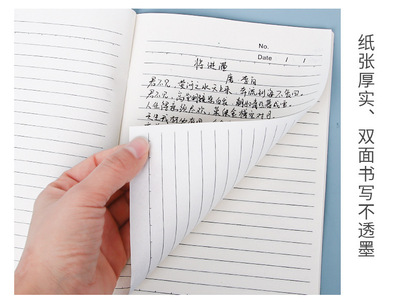 No.
Date / /
将进酒
唐 李白
君不见,黄河之水天上来,奔流到海不复回。
君不见,高堂明镜悲白发,朝如青丝暮成雪。
人生得意须尽欢,莫使金樽空对月。
天生我材
纸张厚实、双面书写不透墨